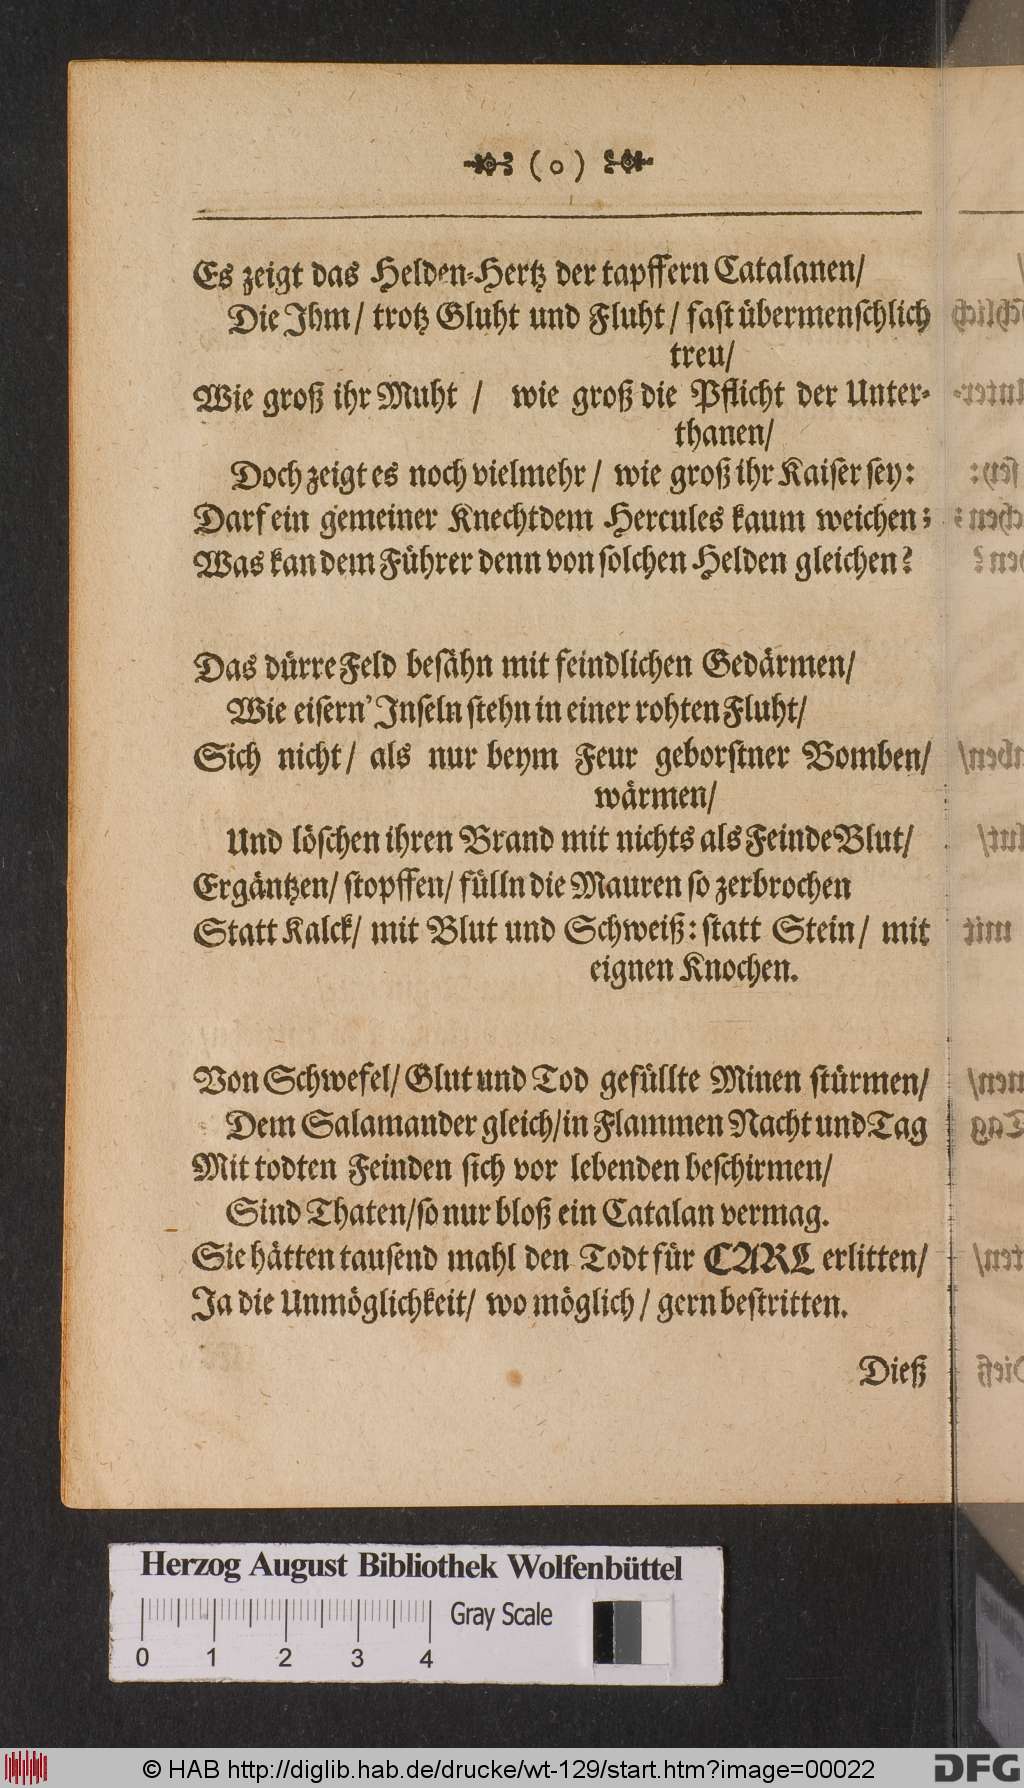 ( o )
Es zeigt das Helden-Hertz der tapffern Catalanen/
Die Ihm/ trotz Gluht und Fluht/ fast übermenschlich
treu/
Wie groß ihr Muht / wie groß die Pflicht der Unter-
thanen/
Doch zeigt es noch vielmehr/ wie groß ihr Kaiser sey:
Darf ein gemeiner Knecht dem Hercules kaum weichen;
Was kan dem Führer denn von solchen Helden gleichen?
Das dürre Feld besähn mit feindlichen Gedärmen/
Wie eisern' Inseln stehn in einer rohten Fluht/
Sich nicht/ als nur beym Feur geborstner Bomben/
wärmen/
Und löschen ihren Brand mit nichts als Feinde Blut/
Ergäntzen/ stopffen/ fülln die Mauren so zerbrochen
Statt Kalck/ mit Blut und Schweiß: statt Stein/ mit
eignen Knochen.
Von Schwefel/ Glut und Tod gefüllte Minen stürmen/
Dem Salamander gleich/ in Flammen Nacht und Tag
Mit todten Feinden sich vor lebenden beschirmen/
Sind Thaten/ so nur bloß ein Catalan vermag.
Sie hätten tausend mahl den Todt für CARL erlitten/
Ja die Unmöglichkeit/ wo möglich/ gern bestritten.
Dieß
Herzog August Bibliothek Wolfenbüttel
Gray Scale
0 1 2 3 4
© HAB http://diglib.hab.de/drucke/wt-129/start.htm?image=00022
DFG